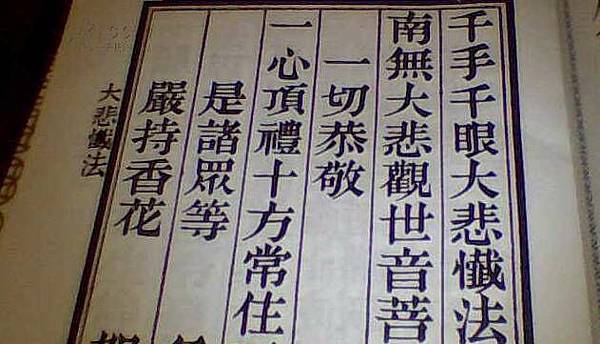 千手千眼大悲懺法
南無大悲觀世音菩
一切恭敬
一心頂禮十方常住
是諸眾等
嚴持香花
大悲懺法